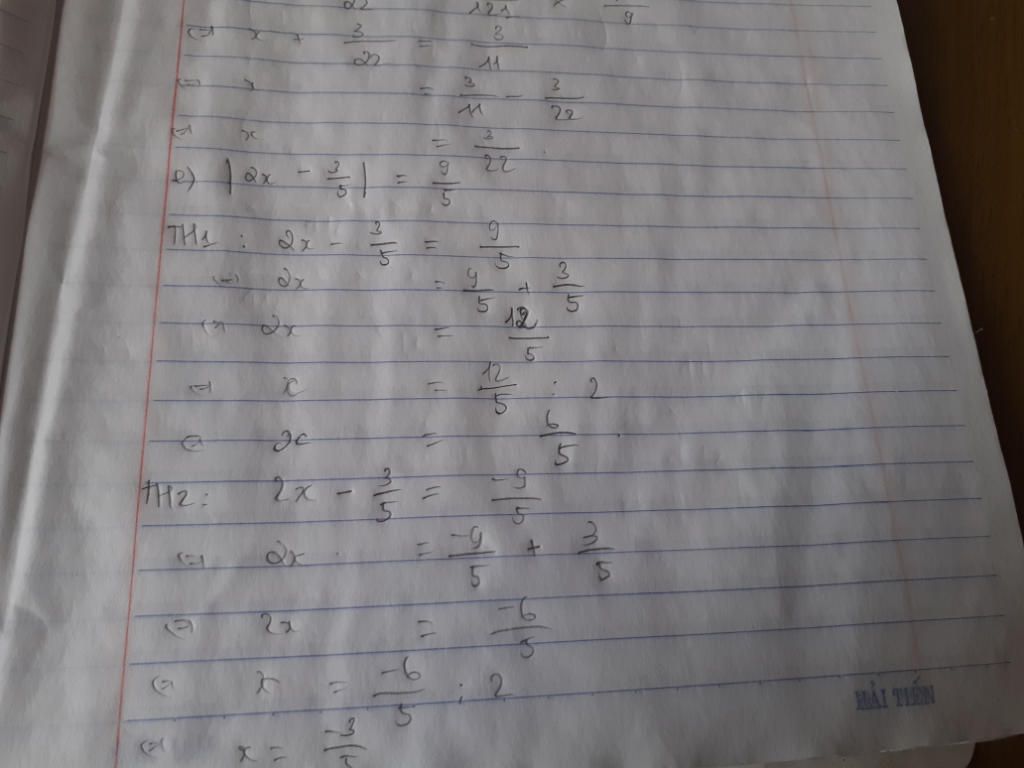 ⇔ x + 3/22 = 3/11
⇔ x = 3/11 - 3/22
⇔ x = 3/22
e) |2x - 3/5| = 9/5
TH1 : 2x - 3/5 = 9/5
⇔ 2x = 9/5 + 3/5
⇔ 2x = 12/5
⇔ x = 12/5 : 2
⇔ x = 6/5
TH2 : 2x - 3/5 = -9/5
⇔ 2x = -9/5 + 3/5
⇔ 2x = -6/5
⇔ x = -6/5 : 2
⇔ x = -3/5
HẢI TIẾN